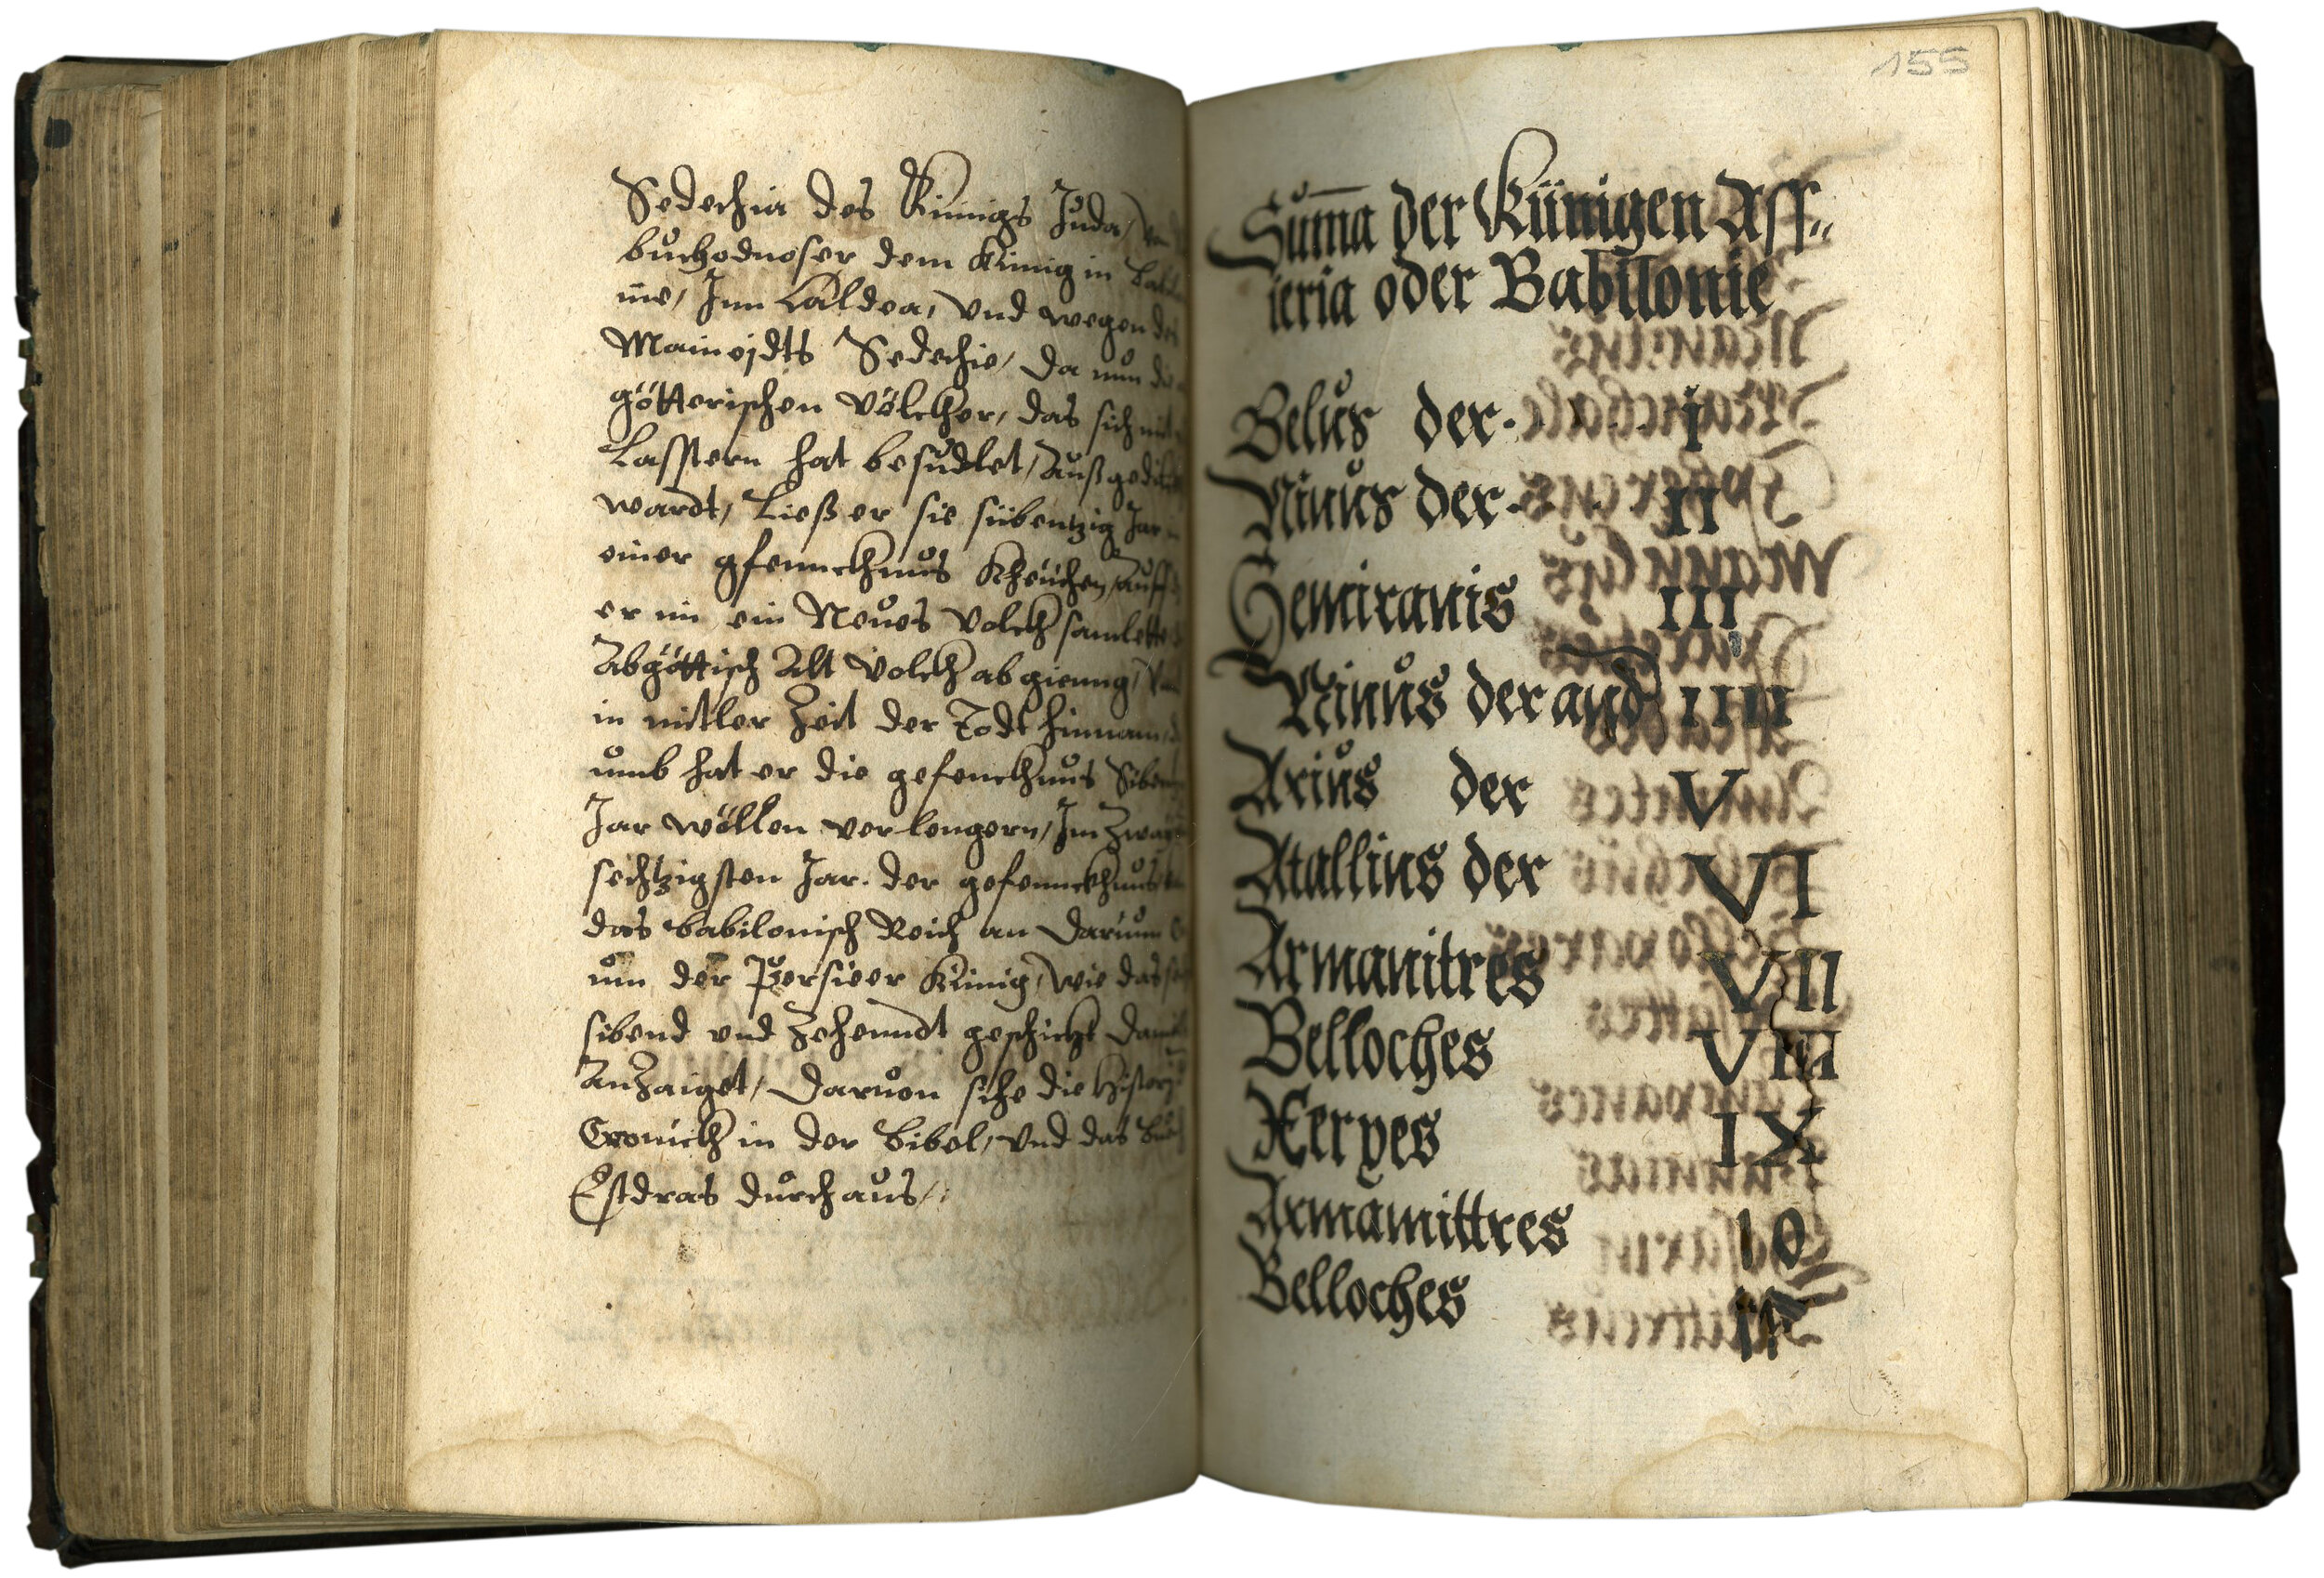 Sedechia des Künigs Juda,
buchodnoser dem Künig in
nie, Jnn Caldea, vnd wegen des
Maineydts Sedechie, da nun die
götterischen Völckher, das sich mit
Lasstern hat besudlet, Außgedilckt
wardt, Ließ er sie sübentzig Jar
einer gfennckhnus Kheüchen, Auff
er im ein Neues Volckh samlette
Abgöttisch Alt Volckh abgienng,
in mitler Zeit der Todt hinnam,
umb hat er die gefenckhnus Siben
Jar wöllen verlengern, Jm Zway
sechtzigsten Jar. der gefennckhnus
das babilonisch Reich an Darium
um der Persieer Künig, wie das
sibend vnd Zehenndt geschicht
Anzaiget, Daruon sihe die Histori
Cronickh in der Bibel, vnd das Buch
Estdras durchaus,
155
Suma der Künigen Ass„
ieria oder Babilonie
Belus der. I
Ninus der. II
Semiranis III
Ninus der and IIII
Arius der V
Atallius der VI
Armanitres VII
Belloches VIII
Xerpes IX
Armamittres 10
Belloches 11